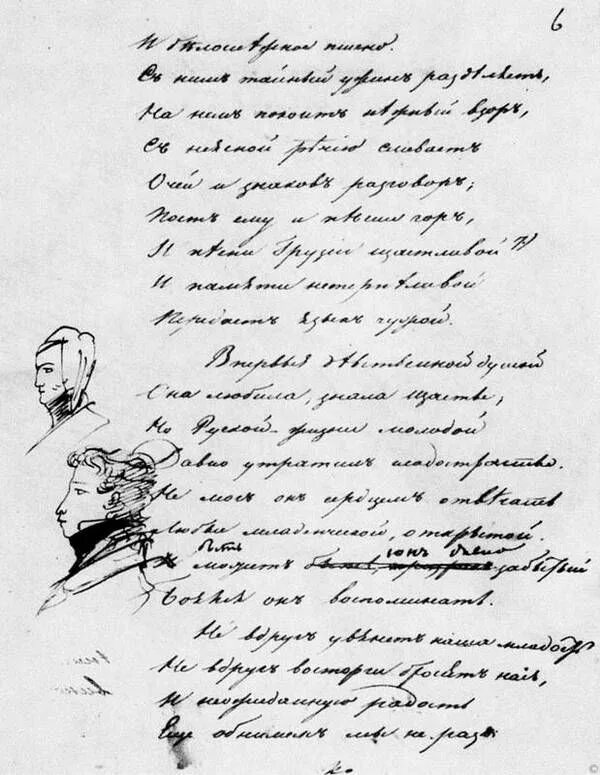 6
И бѣлоснѣжное пшено.
Съ нимъ тайный ужинъ раздѣляетъ,
На немъ покоитъ нѣжный взоръ,
Съ неясной рѣчію сливаетъ
Очей и знаковъ разговоръ;
Поетъ ему и пѣсни горъ,
И пѣсни Грузіи щастливой 7)
И памяти нетерпѣливой
Передаетъ языкъ чужой.
Впервыя дѣвственной душой
Она любила, знала щастье;
Но Руской жизни молодой
Давно утратилъ сладострастье.
Не могъ онъ сердцемъ отвѣчать
Любви младенческой, открытой.
быть сонъ любви
можетъ забытый
Боялся онъ воспоминать.
Не вдругъ увянетъ наша младость
Не вдругъ восторги бросятъ насъ,
И неожиданную радость
Еще обнимемъ мы не разъ
©